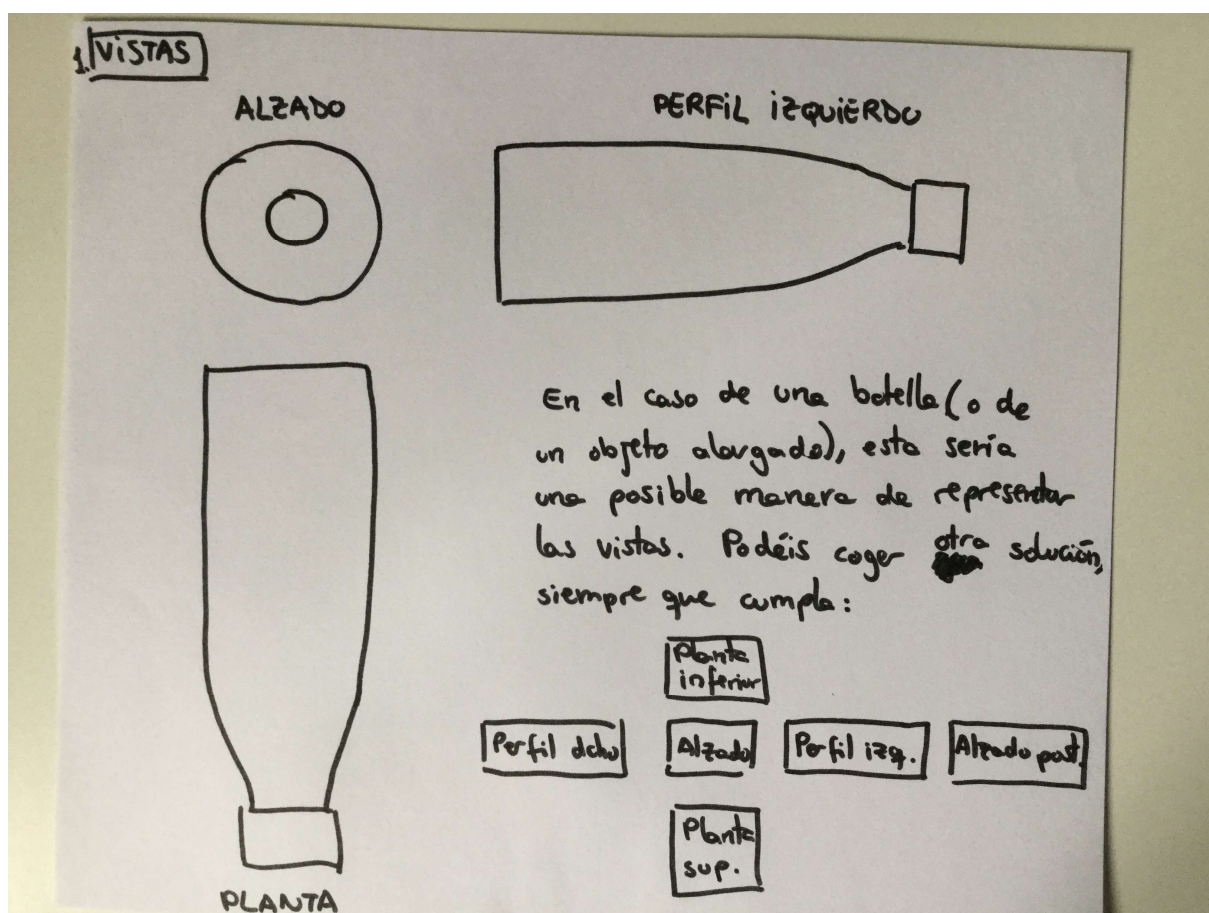 1. VISTAS
ALZADO
PERFIL IZQUIERDO
En el caso de una botella (o de
un objeto alargado), esta sería
una posible manera de representar
las vistas. Podéis coger otra solución,
siempre que cumpla:
Planta
inferior
Perfil dcho
Alzado
Perfil izq.
Alzado post.
Planta
sup.
PLANTA